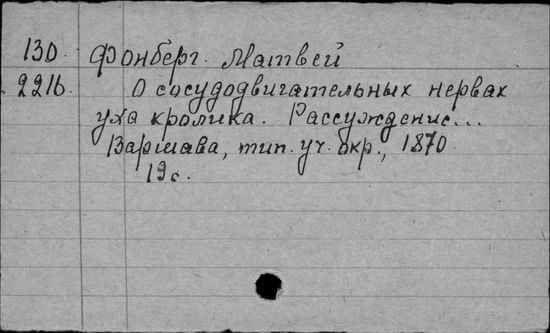 130. Фонберг Матвей
221б. О сосудодвигательных нервах
уха кролика. Рассуждение...
Варшава, тип. уч. окр., 1870.
19 с.